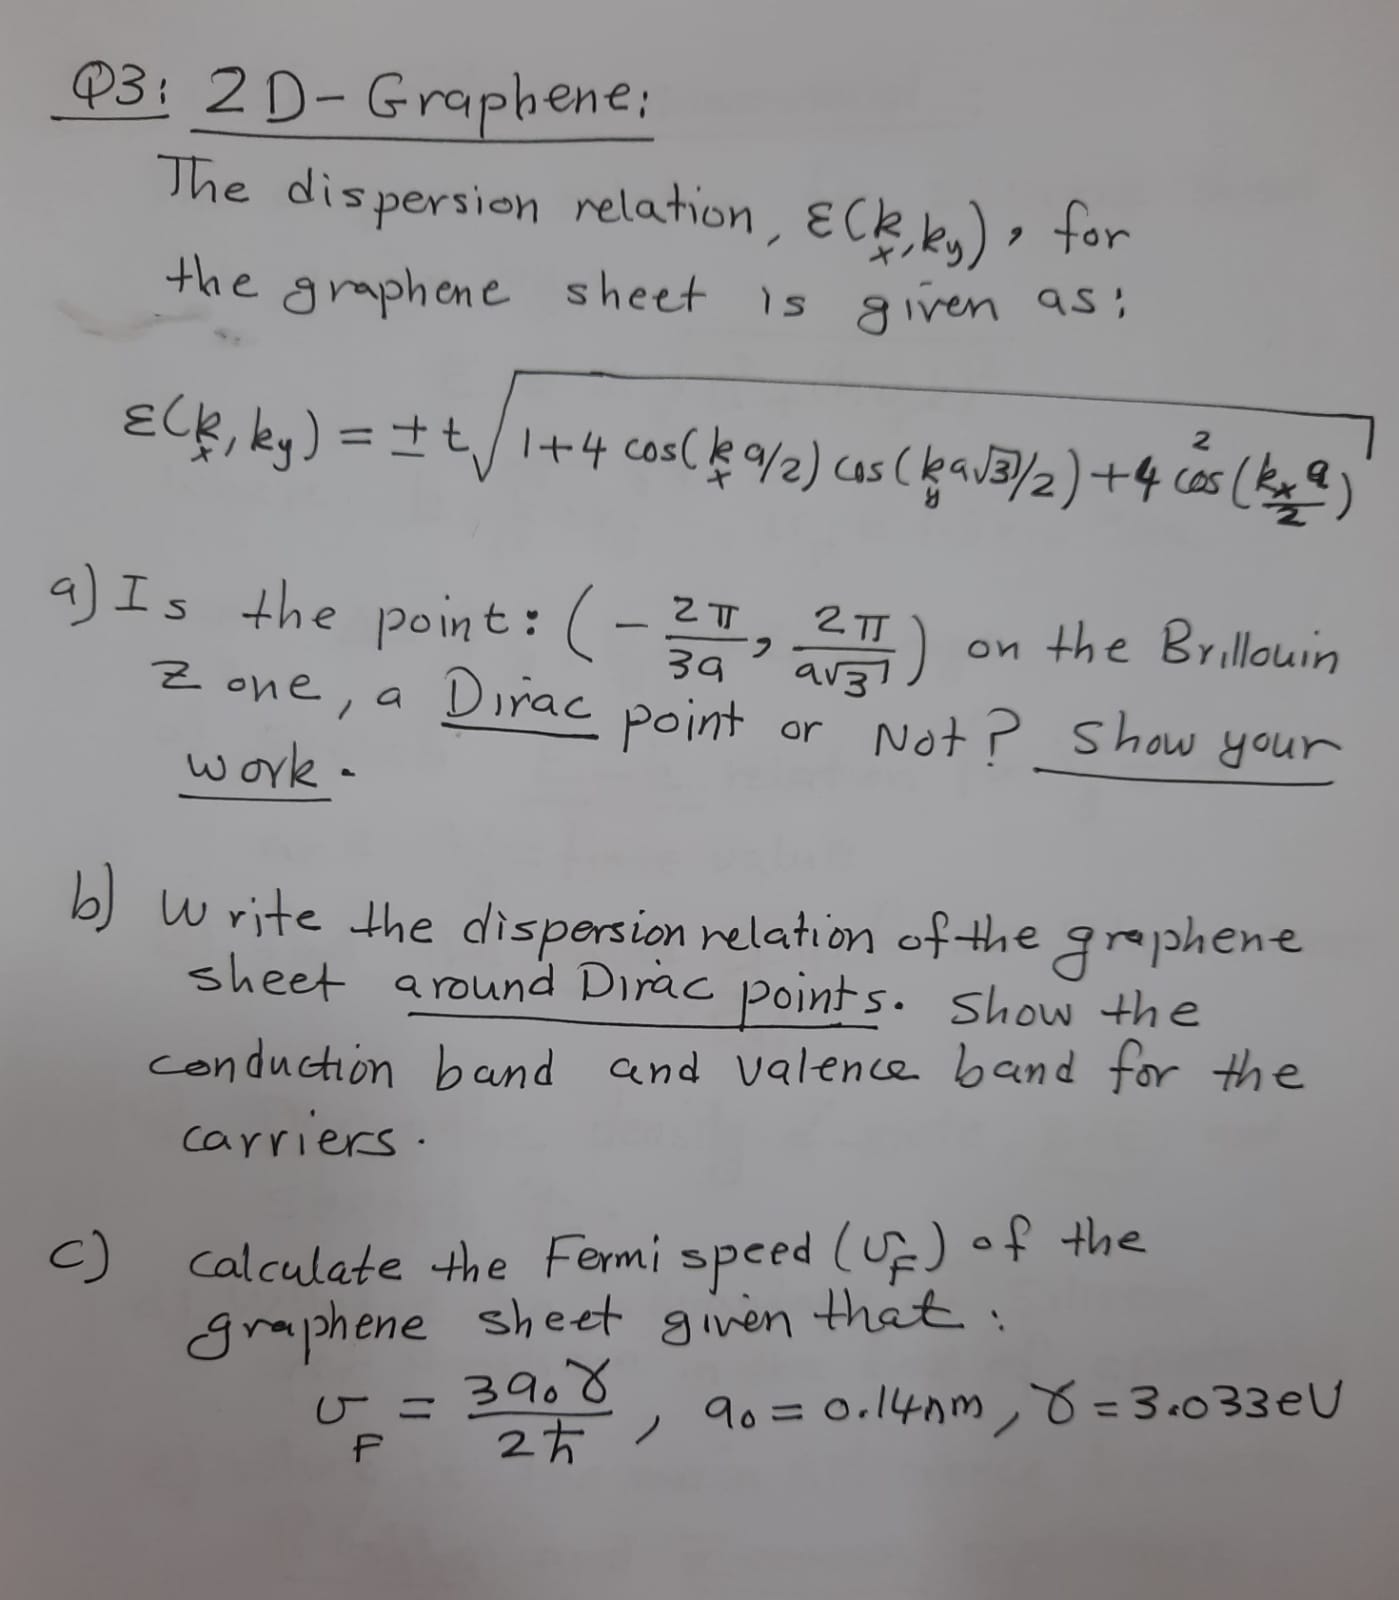 Q3: 2D-Graphene:
The dispersion relation, ε(kx,ky), for
the graphene sheet is given as:
ε(kx,ky) = ±t√1+4 cos(kx a/2) cos(ky a√3/2)+4 cos²(kx a/2)
a) Is the point: (-2π/3a, 2π/a√3) on the Brillouin
Zone, a Dirac point or Not? Show your
work.
b) Write the dispersion relation of the graphene
sheet around Dirac points. Show the
conduction band and valence band for the
carriers.
c) calculate the Fermi speed (υF) of the
graphene sheet given that:
υF = 3a₀γ/2ħ, a₀ = 0.14nm, γ = 3.033eV